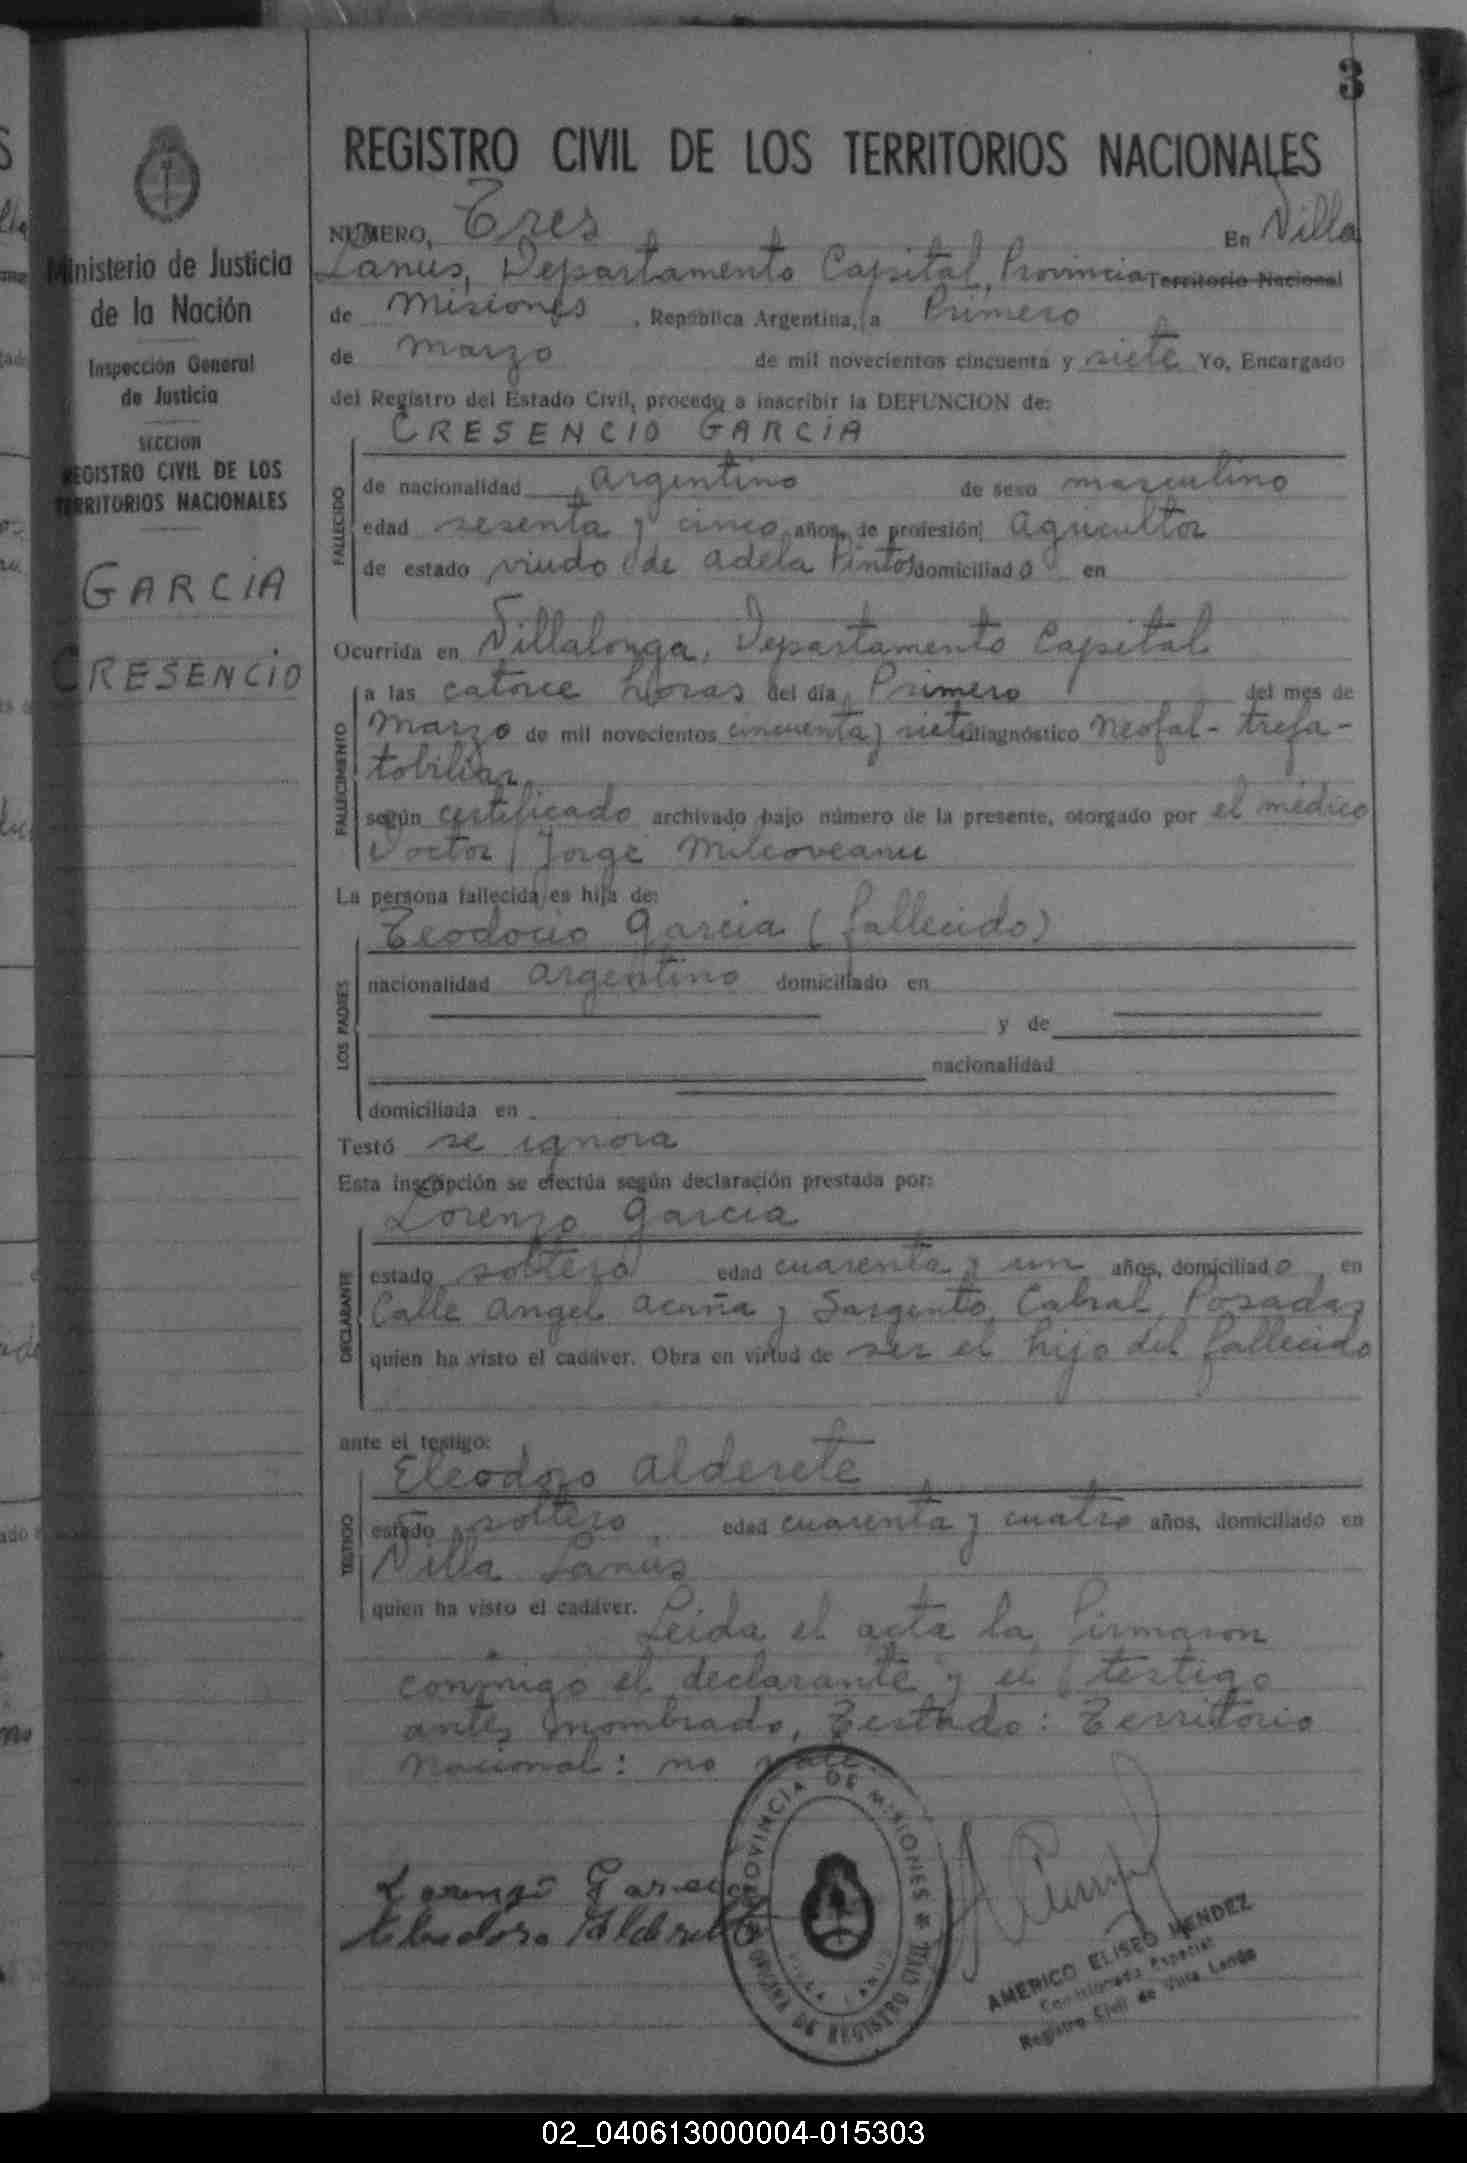 3
REGISTRO CIVIL DE LOS TERRITORIOS NACIONALES
Ministerio de Justicia
de la Nación
Inspección General
de Justicia
SECCION
REGISTRO CIVIL DE LOS
TERRITORIOS NACIONALES
GARCIA
CRESENCIO
NUMERO, Tres En Villa
Lanus, Departamento Capital, Provincia Territorio Nacional
de Misiones, República Argentina, a Primero
de Marzo de mil novecientos cincuenta y siete Yo, Encargado
del Registro del Estado Civil, procedo a inscribir la DEFUNCION de:
CRESENCIO GARCIA
FALLECIDO
de nacionalidad argentino de sexo masculino
edad sesenta y cinco años, de profesión agricultor
de estado viudo (de Adela Pintos) domiciliado en
Ocurrida en Villalonga, Departamento Capital
FALLECIMIENTO
a las catorce horas del día Primero del mes de
Marzo de mil novecientos cincuenta y siete diagnóstico
tobiliar
según certificado archivado bajo número de la presente, otorgado por el médico
Doctor Jorge Milcoveanu
La persona fallecida es hija de:
Teodocio Garcia (fallecido)
LOS PADRES
nacionalidad argentino domiciliado en
y de
nacionalidad
domiciliada en
Testó se ignora
Esta inscripción se efectúa según declaración prestada por:
Lorenzo Garcia
DECLARANTE
estado soltero edad cuarenta y un años, domiciliado en
Calle Angel Acuña y Sargento Cabral, Posadas
quien ha visto el cadáver. Obra en virtud de ser el hijo del fallecido
ante el testigo:
Eleodoro Alderete
TESTIGO
estado soltero edad cuarenta y cuatro años, domiciliado en
Villa Lanús
quien ha visto el cadáver. Leida el acta la firmaron
conmigo el declarante y el testigo
antes nombrado, Testado: Territorio
Nacional: no vale.
Lorenzo Garcia
Eleodoro Alderete
PROVINCIA DE MISIONES
OFICINA DE REGISTRO CIVIL
VILLA LANUS
AMERICO ELISEO MENDEZ
Comisionado Especial
Registro Civil de Villa Lanús
02_040613000004-015303